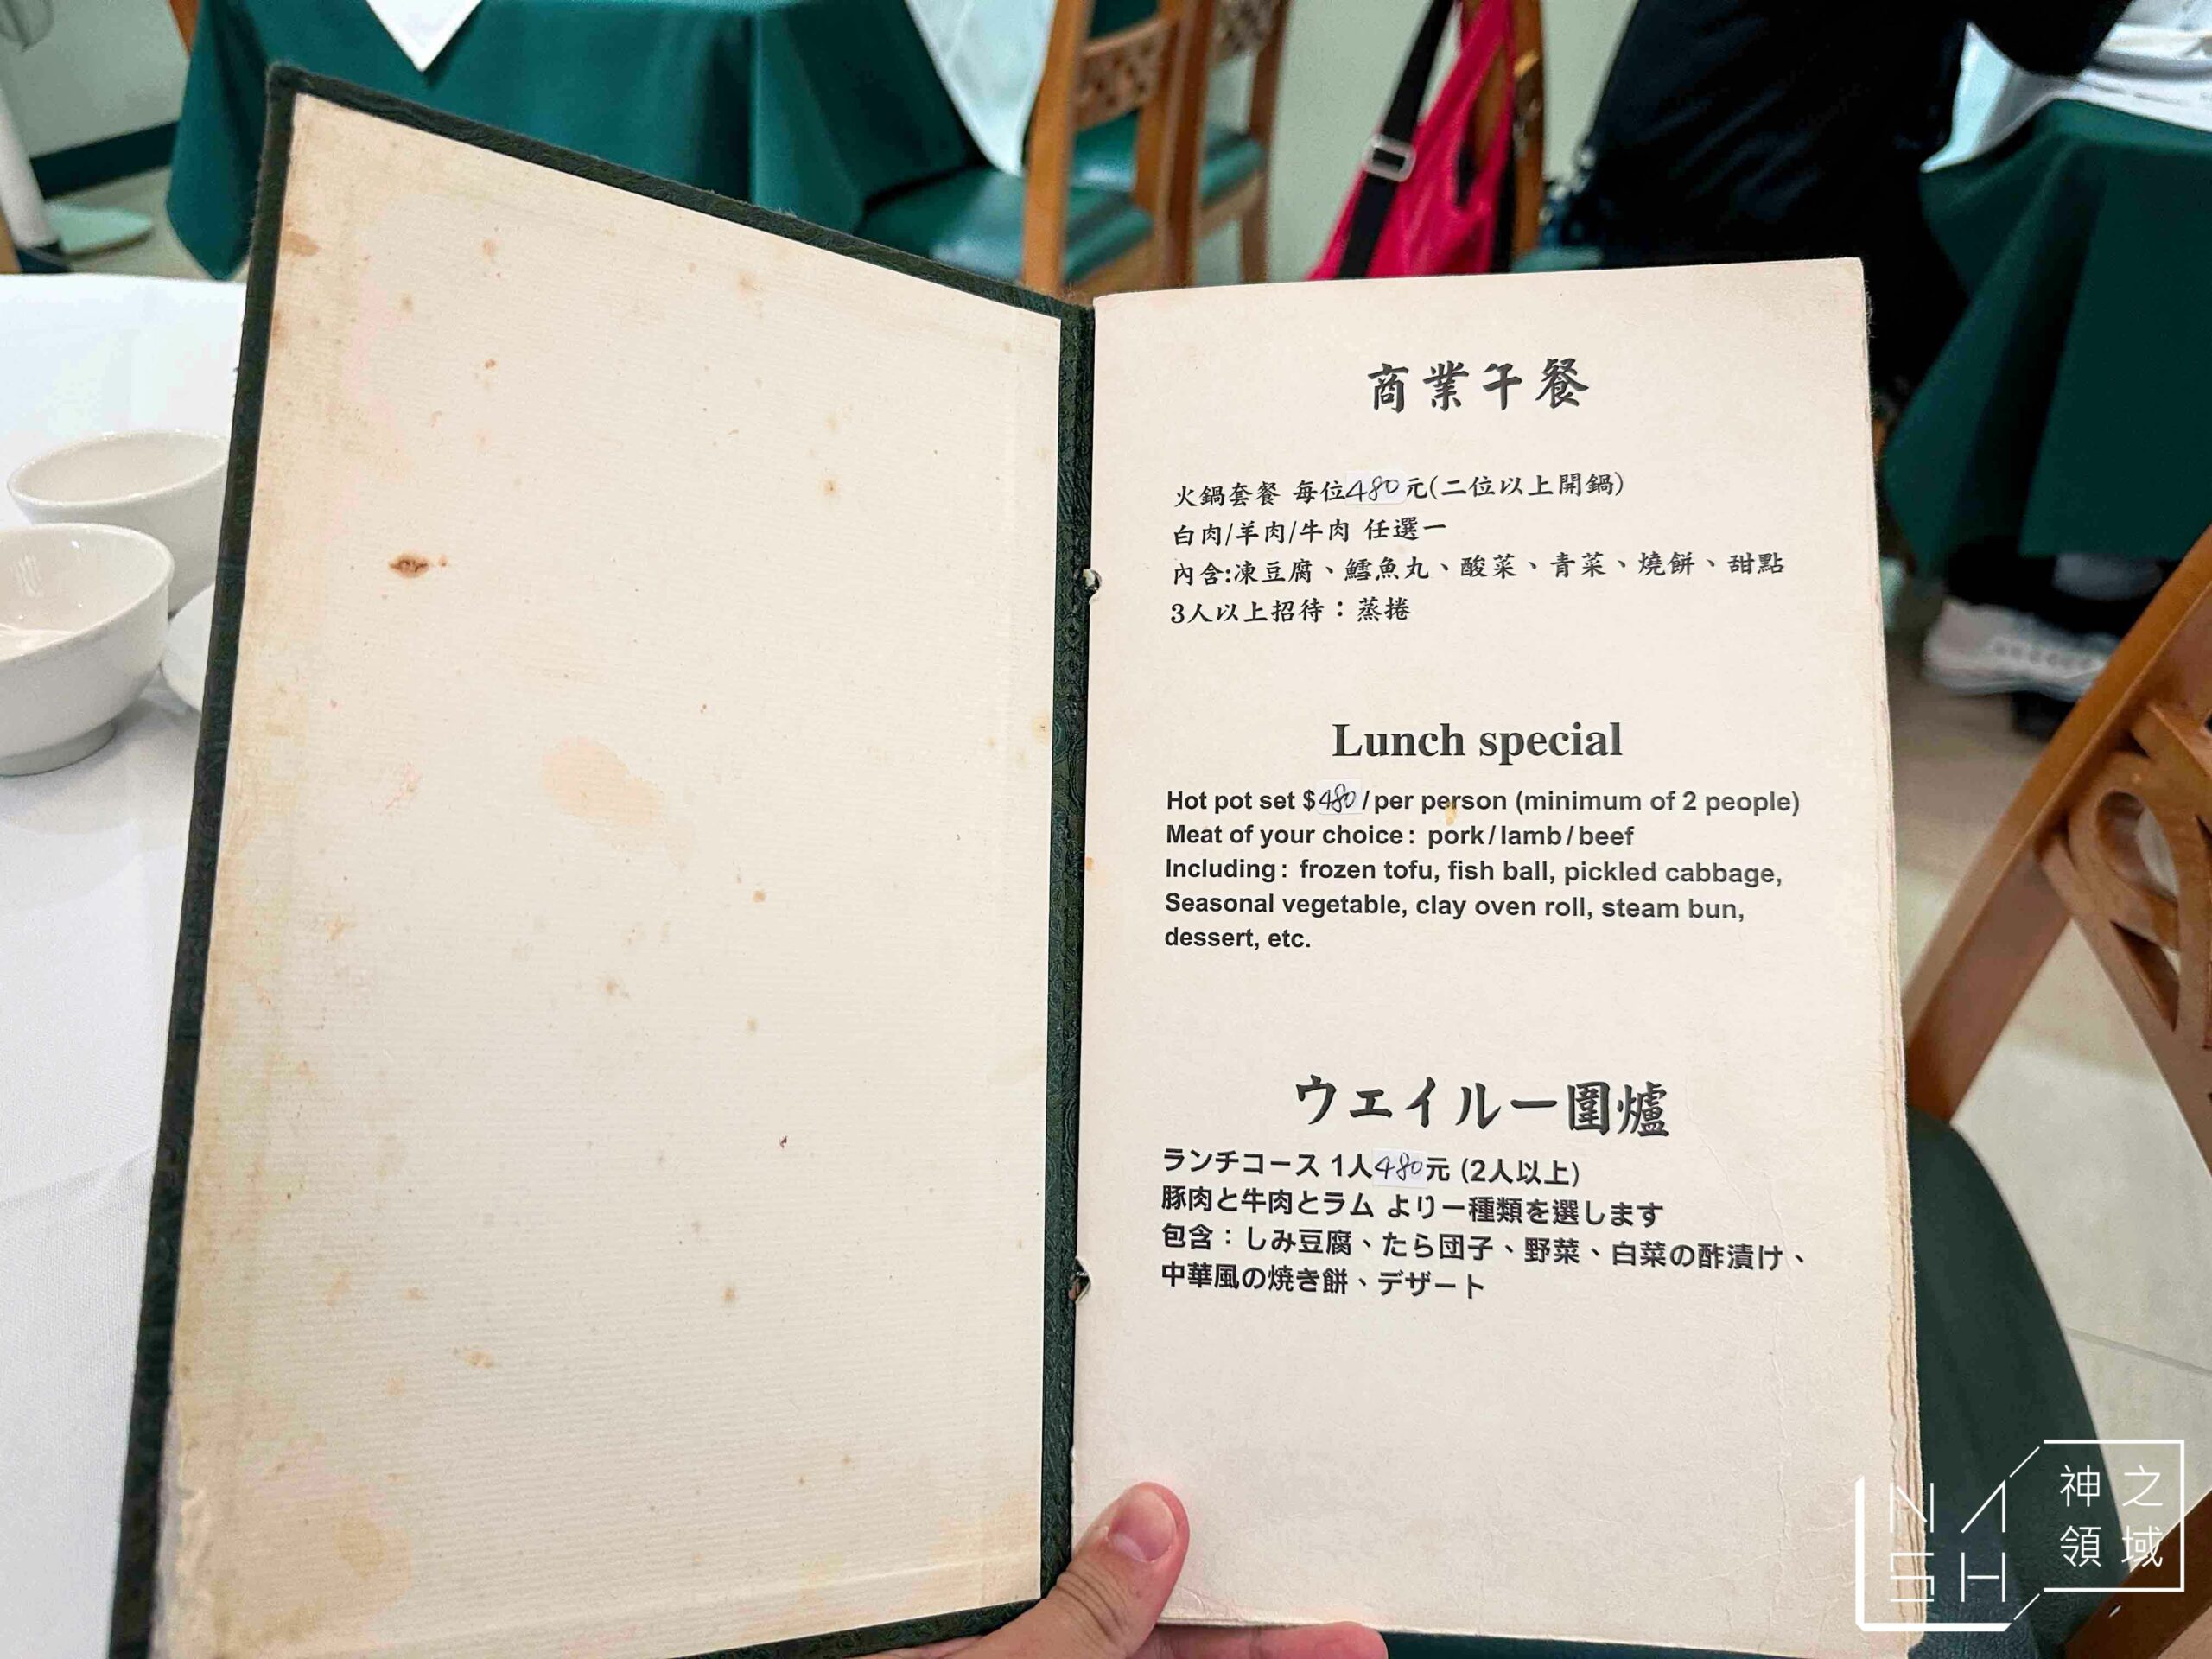 商業午餐
火鍋套餐 每位480元(二位以上開鍋)
白肉/羊肉/牛肉 任選一
內含:凍豆腐、鱈魚丸、酸菜、青菜、燒餅、甜點
3人以上招待：蒸捲
Lunch special
Hot pot set $480/per person (minimum of 2 people)
Meat of your choice: pork/lamb/beef
Including: frozen tofu, fish ball, pickled cabbage,
Seasonal vegetable, clay oven roll, steam bun,
dessert, etc.
ウェイルー圍爐
ランチコース 1人480元 (2人以上)
豚肉と牛肉とラム より一種類を選します
包含：しみ豆腐、たら団子、野菜、白菜の酢漬け、
中華風の焼き餅、デザート
NASH
神之領域